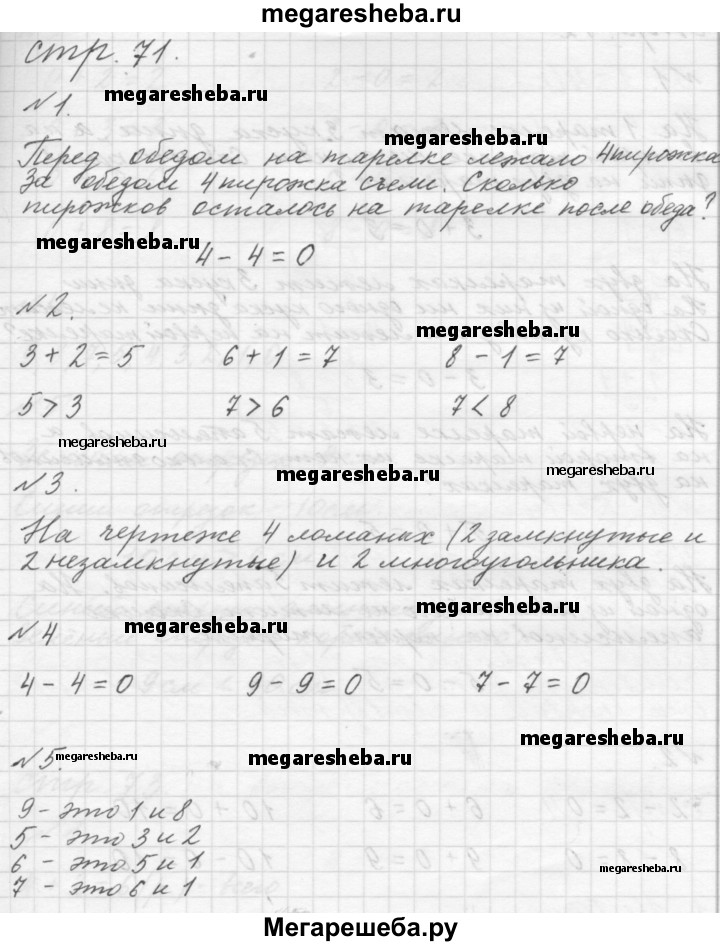 megaresheba.ru
стр. 71.
№1.
megaresheba.ru
megaresheba.ru
Перед обедом на тарелке лежало 4 пирожка
За обедом 4 пирожка съели. Сколько
пирожков осталось на тарелке после обеда?
megaresheba.ru
4 - 4 = 0
№2.
megaresheba.ru
3 + 2 = 5 6 + 1 = 7 8 - 1 = 7
5 > 3 7 > 6 7 < 8
megaresheba.ru
megaresheba.ru
megaresheba.ru
№3.
На чертеже 4 ломаных (2 замкнутые и
2 незамкнутые) и 2 многоугольника.
megaresheba.ru
№4
megaresheba.ru
4 - 4 = 0 9 - 9 = 0 7 - 7 = 0
megaresheba.ru
№5.
megaresheba.ru
megaresheba.ru
9 - это 1 и 8
5 - это 3 и 2
6 - это 5 и 1
megaresheba.ru
7 - это 6 и 1
Мегарешеба.ру